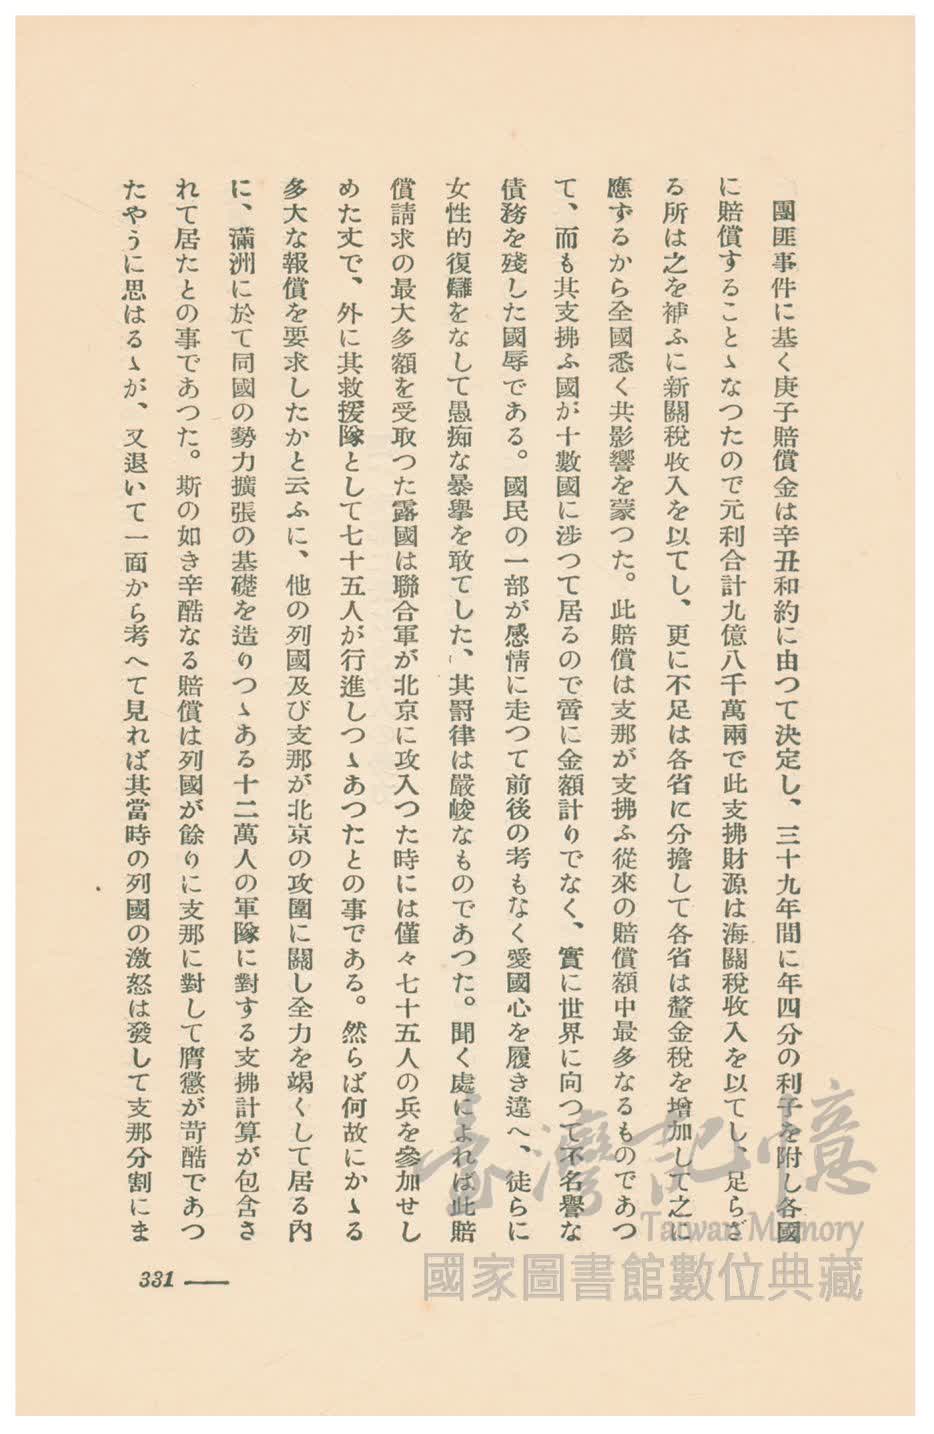 團匪事件に基く庚子賠償金は辛丑和約に由つて決定し、三十九年間に年四分の利子を附し各國
に賠償することゝなつたので元利合計九億八千萬兩で此支拂財源は海關稅收入を以てし、足らざ
る所は之を補ふに新關稅收入を以てし、更に不足は各省に分擔して各省は釐金稅を增加して之に
應ずるから全國悉く共影響を蒙つた。此賠償は支那が支拂ふ從來の賠償額中最多なるものであつ
て、而も其支拂ふ國が十數國に涉つて居るので啻に金額計りでなく、實に世界に向つて不名譽な
債務を殘した國辱である。國民の一部が感情に走つて前後の考もなく愛國心を履き違へ、徒らに
女性的復讎をなして愚痴な暴擧を敢てした、其罸律は嚴峻なものであつた。聞く處によれば此賠
償請求の最大多額を受取つた露國は聯合軍が北京に攻入つた時には僅々七十五人の兵を參加せし
めた丈で、外に其救援隊として七十五人が行進しつゝあつたとの事である。然らば何故にかゝる
多大な報償を要求したかと云ふに、他の列國及び支那が北京の攻圍に關し全力を竭くして居る內
に、滿洲に於て同國の勢力擴張の基礎を造りつゝある十二萬人の軍隊に對する支拂計算が包含さ
れて居たとの事であつた。斯の如き辛酷なる賠償は列國が餘りに支那に對して膺懲が苛酷であつ
たやうに思はるゝが、又退いて一面から考へて見れば其當時の列國の激怒は發して支那分割にま
331
臺灣記憶
Taiwan Memory
國家圖書館數位典藏